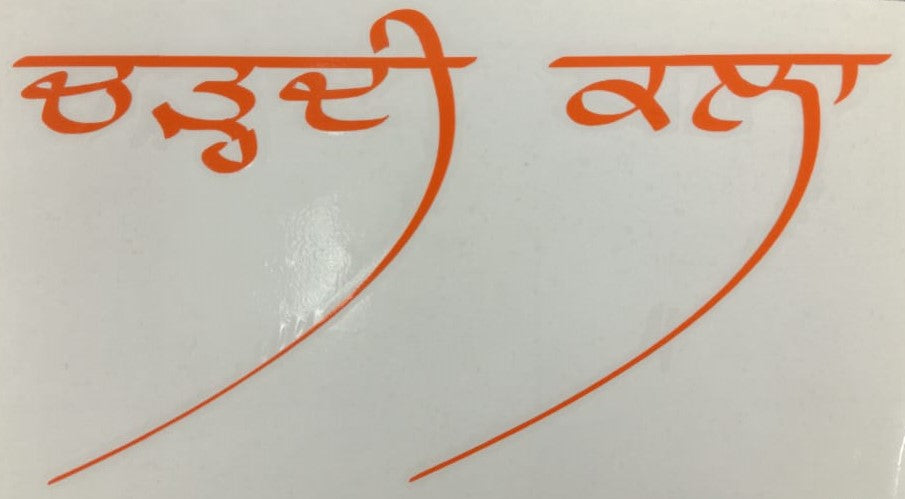 ਚੜ੍ਹਦੀ ਕਲਾ